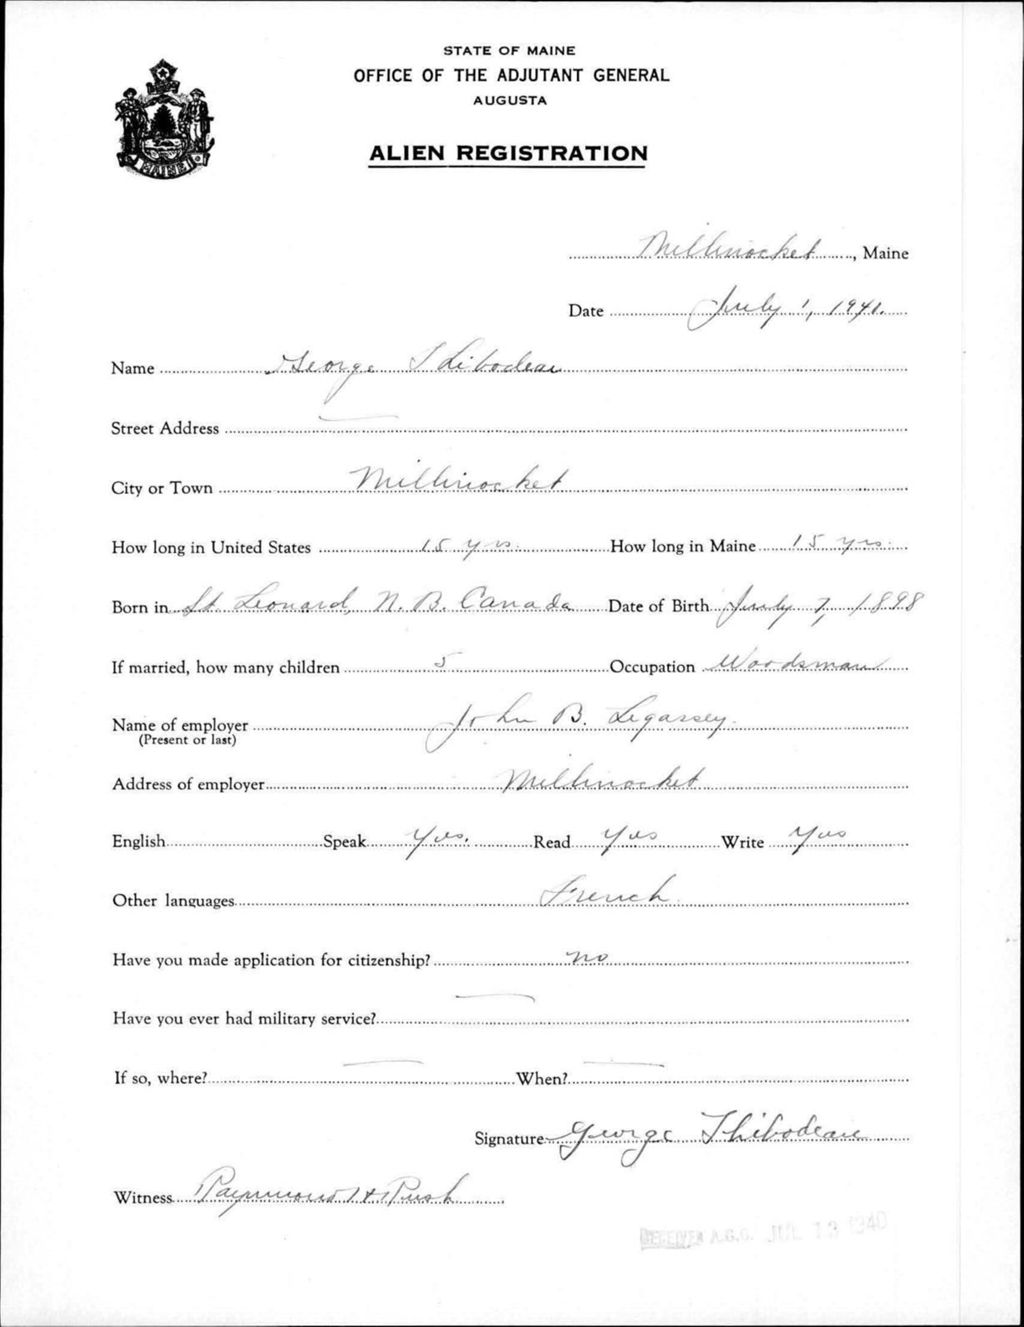 STATE OF MAINE
OFFICE OF THE ADJUTANT GENERAL
AUGUSTA
ALIEN REGISTRATION
MAINE
Millinocket, Maine
Date July 1, 1940.
Name George Thibodeau
Street Address —
City or Town Millinocket
How long in United States 15 yrs. How long in Maine 15 yrs.
Born in St. Leonard, N. B. Canada Date of Birth July 7, 1898
If married, how many children 5 Occupation Woodsman
Name of employer John B. Legassey.
(Present or last)
Address of employer Millinocket
English Speak Yes. Read Yes Write Yes
Other languages French.
Have you made application for citizenship? no
Have you ever had military service? —
If so, where? — When? —
Signature George Thibodeau
Witness Raymond H Rush
RECEIVED A.G.O. JUL 13 1940